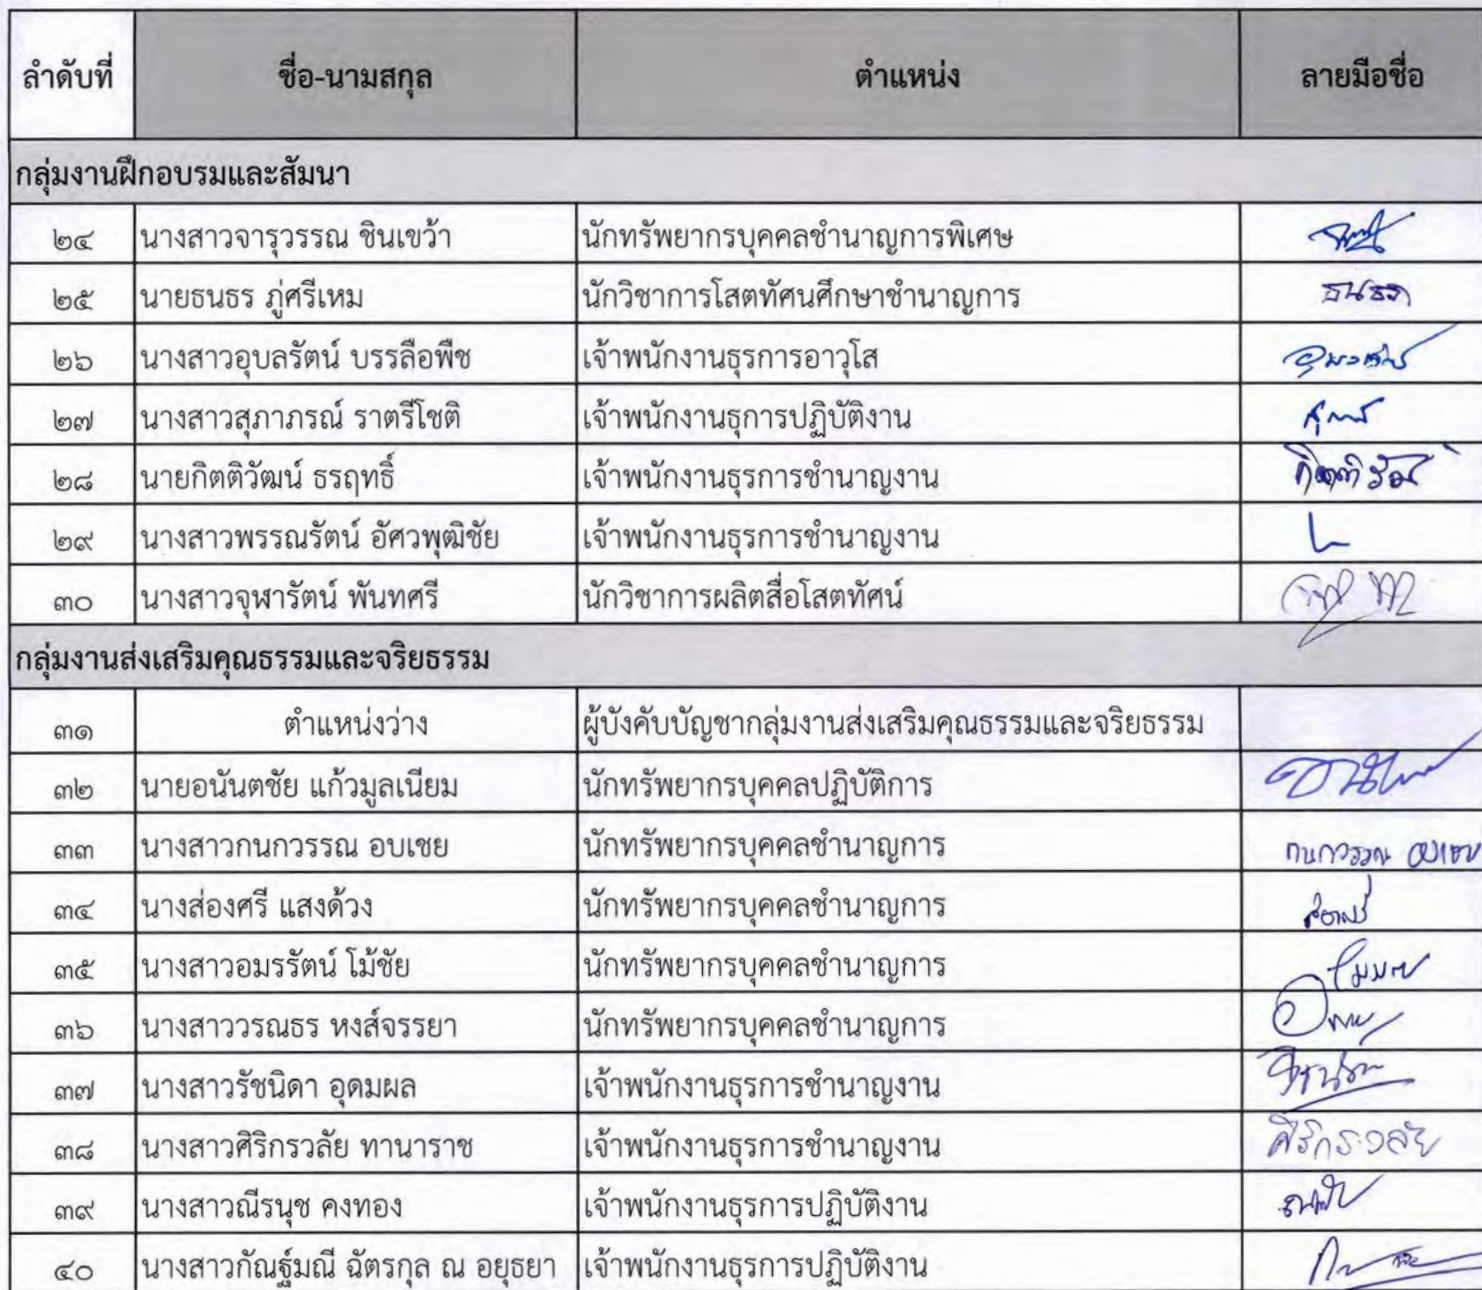 ลำดับที่ ชื่อ-นามสกุล ตำแหน่ง ลายมือชื่อ
กลุ่มงานฝึกอบรมและสัมนา
๒๔ นางสาวจารุวรรณ ชินเขว้า นักทรัพยากรบุคคลชำนาญการพิเศษ
๒๕ นายธนธร ภู่ศรีเหม นักวิชาการโสตทัศนศึกษาชำนาญการ ธนธร
๒๖ นางสาวอุบลรัตน์ บรรลือพืช เจ้าพนักงานธุรการอาวุโส
๒๗ นางสาวสุภาภรณ์ ราตรีโชติ เจ้าพนักงานธุการปฏิบัติงาน
๒๘ นายกิตติวัฒน์ ธรฤทธิ์ เจ้าพนักงานธุรการชำนาญงาน
๒๙ นางสาวพรรณรัตน์ อัศวพุฒิชัย เจ้าพนักงานธุรการชำนาญงาน
๓๐ นางสาวจุฬารัตน์ พันทศรี นักวิชาการผลิตสื่อโสตทัศน์
กลุ่มงานส่งเสริมคุณธรรมและจริยธรรม
๓๑ ตำแหน่งว่าง ผู้บังคับบัญชากลุ่มงานส่งเสริมคุณธรรมและจริยธรรม
๓๒ นายอนันตชัย แก้วมูลเนียม นักทรัพยากรบุคคลปฏิบัติการ
๓๓ นางสาวกนกวรรณ อบเชย นักทรัพยากรบุคคลชำนาญการ กนกวรรณ อบเชย
๓๔ นางส่องศรี แสงด้วง นักทรัพยากรบุคคลชำนาญการ
๓๕ นางสาวอมรรัตน์ โม้ชัย นักทรัพยากรบุคคลชำนาญการ
๓๖ นางสาววรณธร หงส์จรรยา นักทรัพยากรบุคคลชำนาญการ
๓๗ นางสาวรัชนิดา อุดมผล เจ้าพนักงานธุรการชำนาญงาน
๓๘ นางสาวศิริกรวลัย ทานาราช เจ้าพนักงานธุรการชำนาญงาน ศิริกรวลัย
๓๙ นางสาวณีรนุช คงทอง เจ้าพนักงานธุรการปฏิบัติงาน
๔๐ นางสาวกัณฐ์มณี ฉัตรกุล ณ อยุธยา เจ้าพนักงานธุรการปฏิบัติงาน